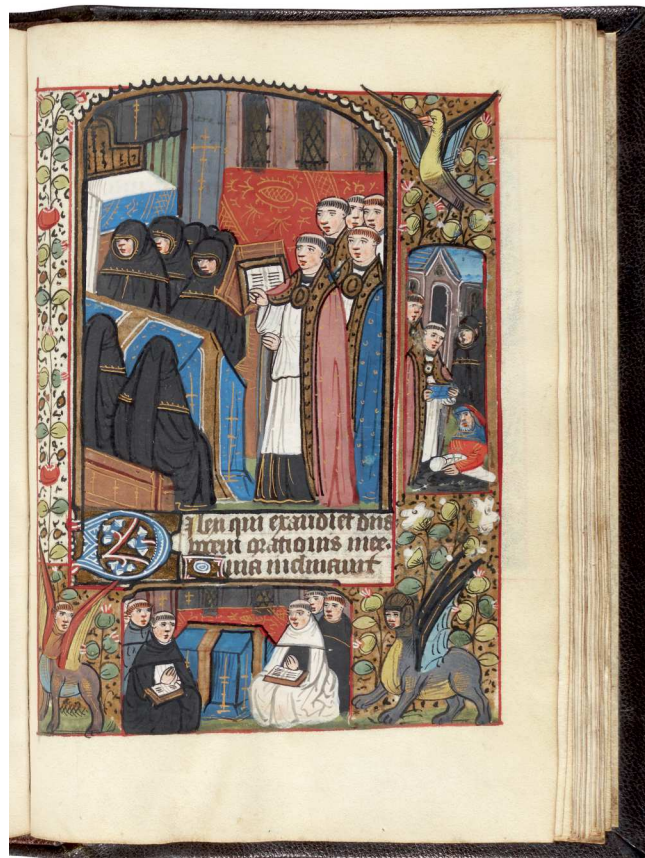 Dilexi qm exaudiet dns
vocem orationis mee.
Quia inclinauit